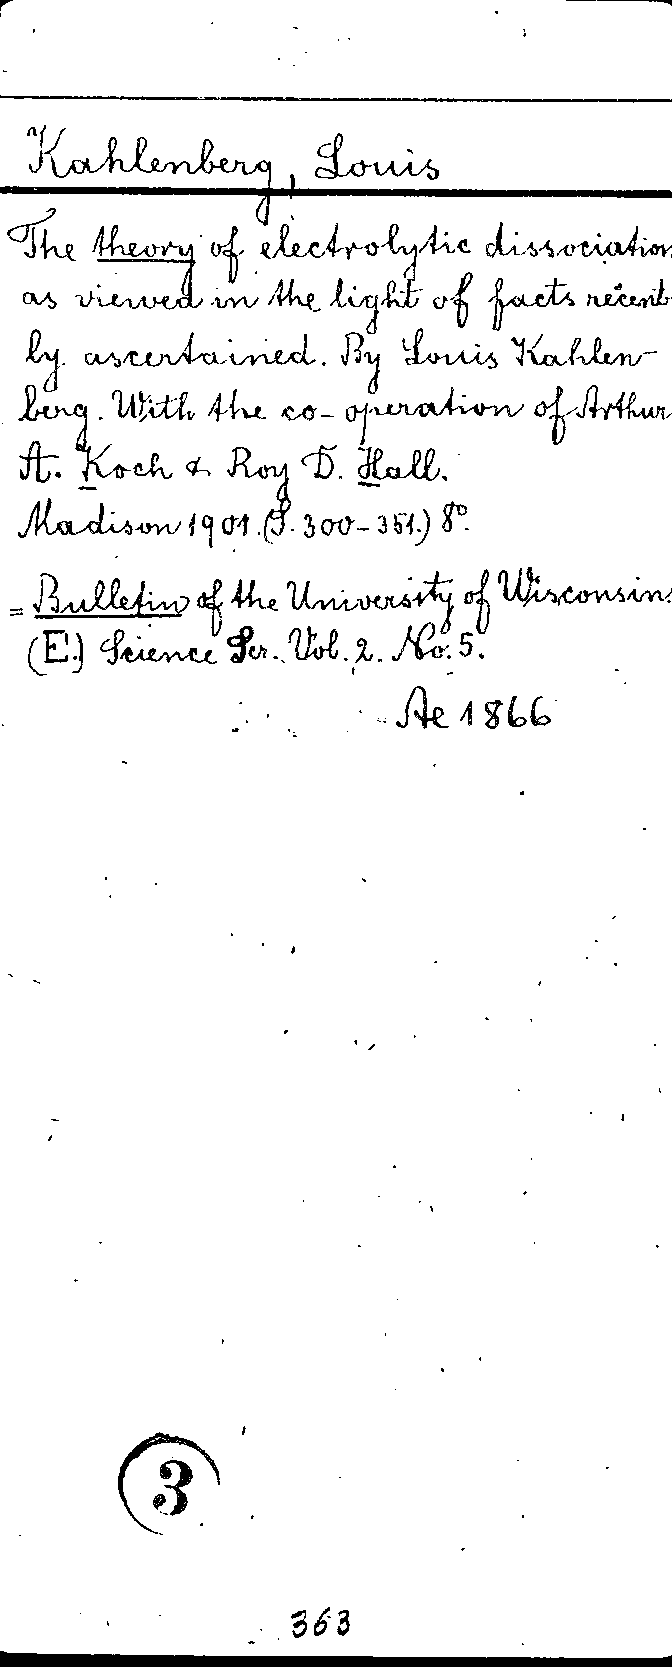 Kahlenberg, Louis
The theory of electrolytic dissociation
as viewed in the light of facts recent-
ly ascertained. By Louis Kahlen-
berg. With the co-operation of Arthur
A. Koch & Roy D. Hall.
Madison 1901. (S. 300-351.) 8°.
= Bulletin of the University of Wisconsins
(E.) Science Ser. Vol. 2. No. 5.
Ae 1866
3
363